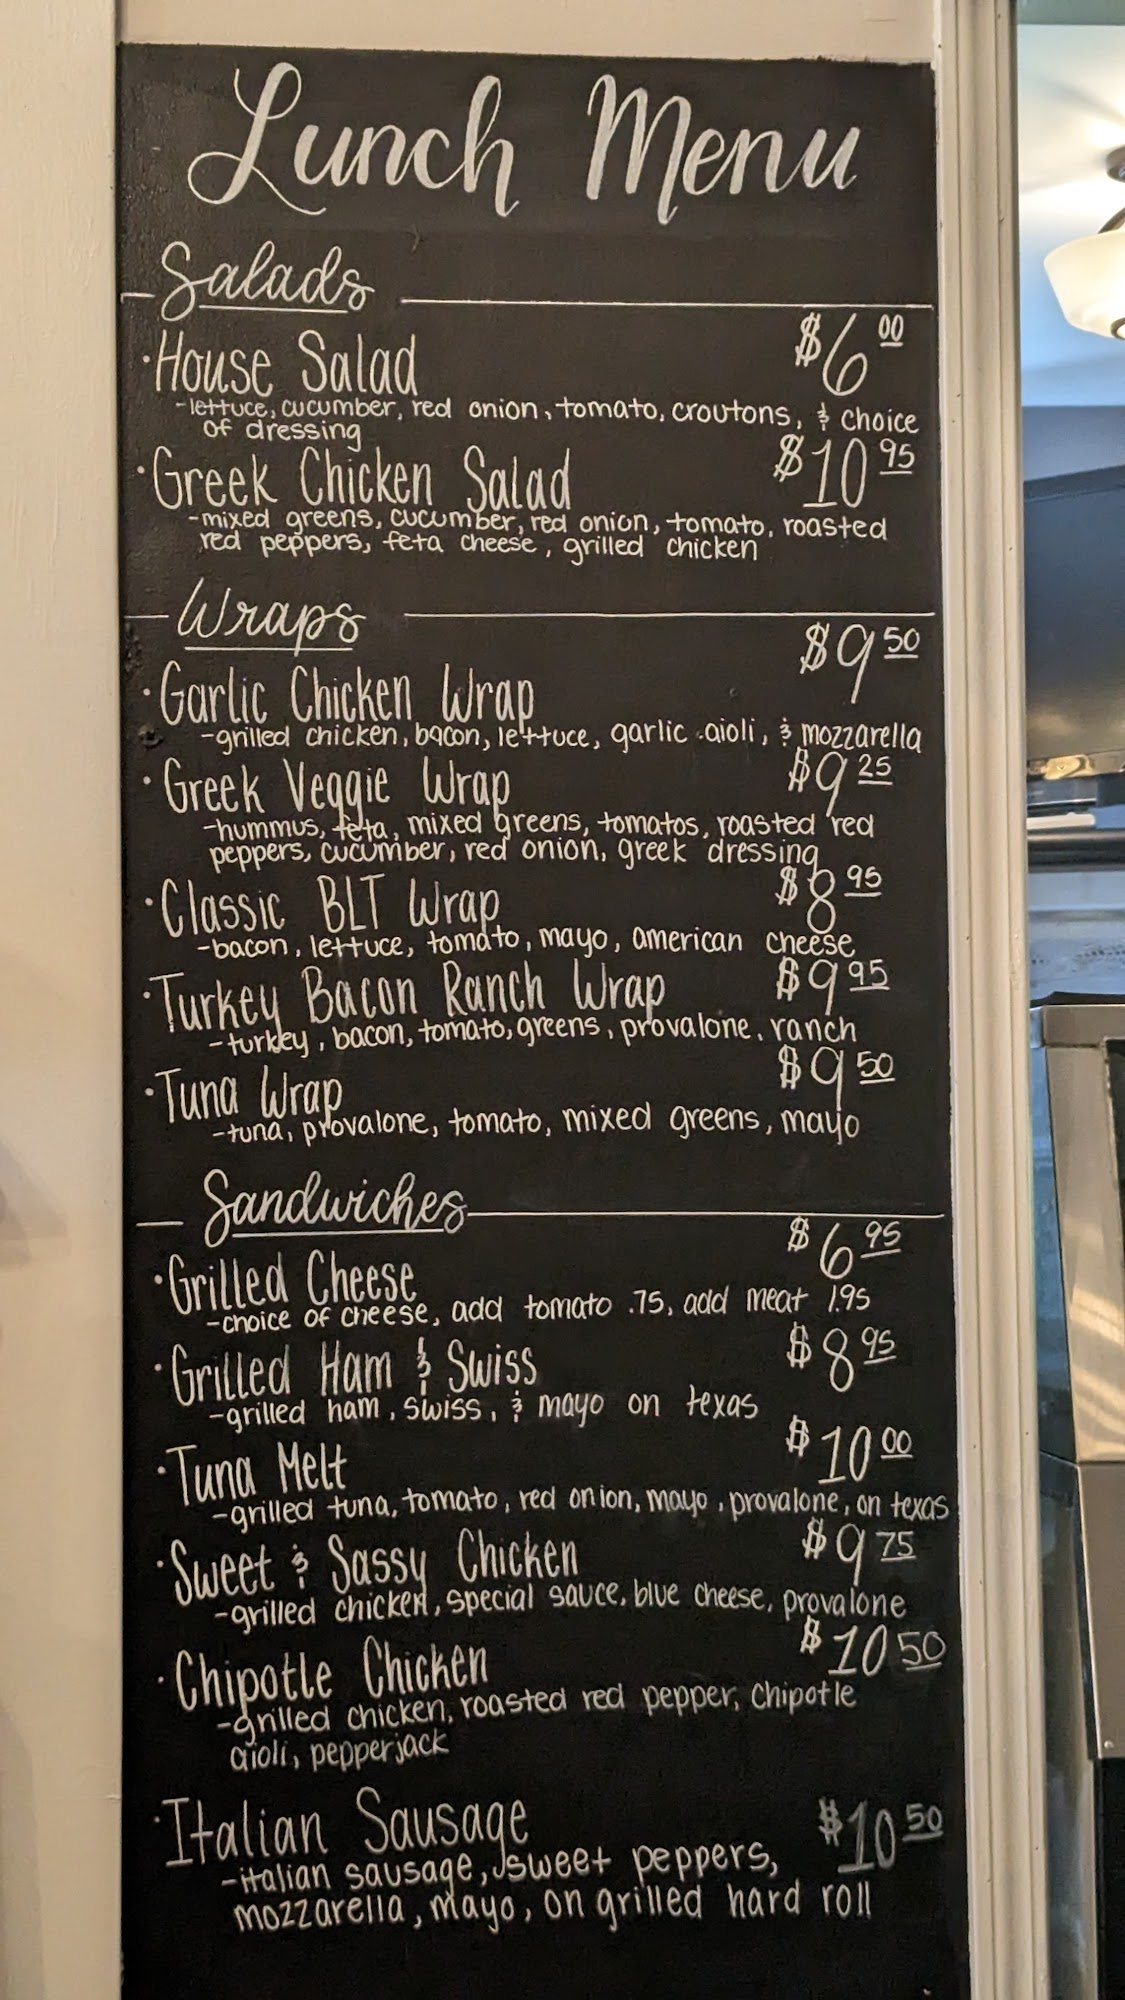 Lunch Menu
Salads
·House Salad $6 00
-lettuce, cucumber, red onion, tomato, croutons, & choice
of dressing
·Greek Chicken Salad $10 95
-mixed greens, cucumber, red onion, tomato, roasted
red peppers, feta cheese, grilled chicken
Wraps
·Garlic Chicken Wrap $9 50
-grilled chicken, bacon, lettuce, garlic aioli, & mozzarella
·Greek Veggie Wrap $9 25
-hummus, feta, mixed greens, tomatos, roasted red
peppers, cucumber, red onion, greek dressing
·Classic BLT Wrap $8 95
-bacon, lettuce, tomato, mayo, american cheese
·Turkey Bacon Ranch Wrap $9 95
-turkey, bacon, tomato, greens, provalone, ranch
·Tuna Wrap $9 50
-tuna, provalone, tomato, mixed greens, mayo
Sandwiches
·Grilled Cheese $6 95
-choice of cheese, add tomato .75, add meat 1.95
·Grilled Ham & Swiss $8 95
-grilled ham, swiss, & mayo on texas
·Tuna Melt $10 00
-grilled tuna, tomato, red onion, mayo, provalone, on texas
·Sweet & Sassy Chicken $9 75
-grilled chicken, special sauce, blue cheese, provalone
·Chipotle Chicken $10 50
-grilled chicken, roasted red pepper, chipotle
aioli, pepperjack
·Italian Sausage $10 50
-italian sausage, sweet peppers,
mozzarella, mayo, on grilled hard roll